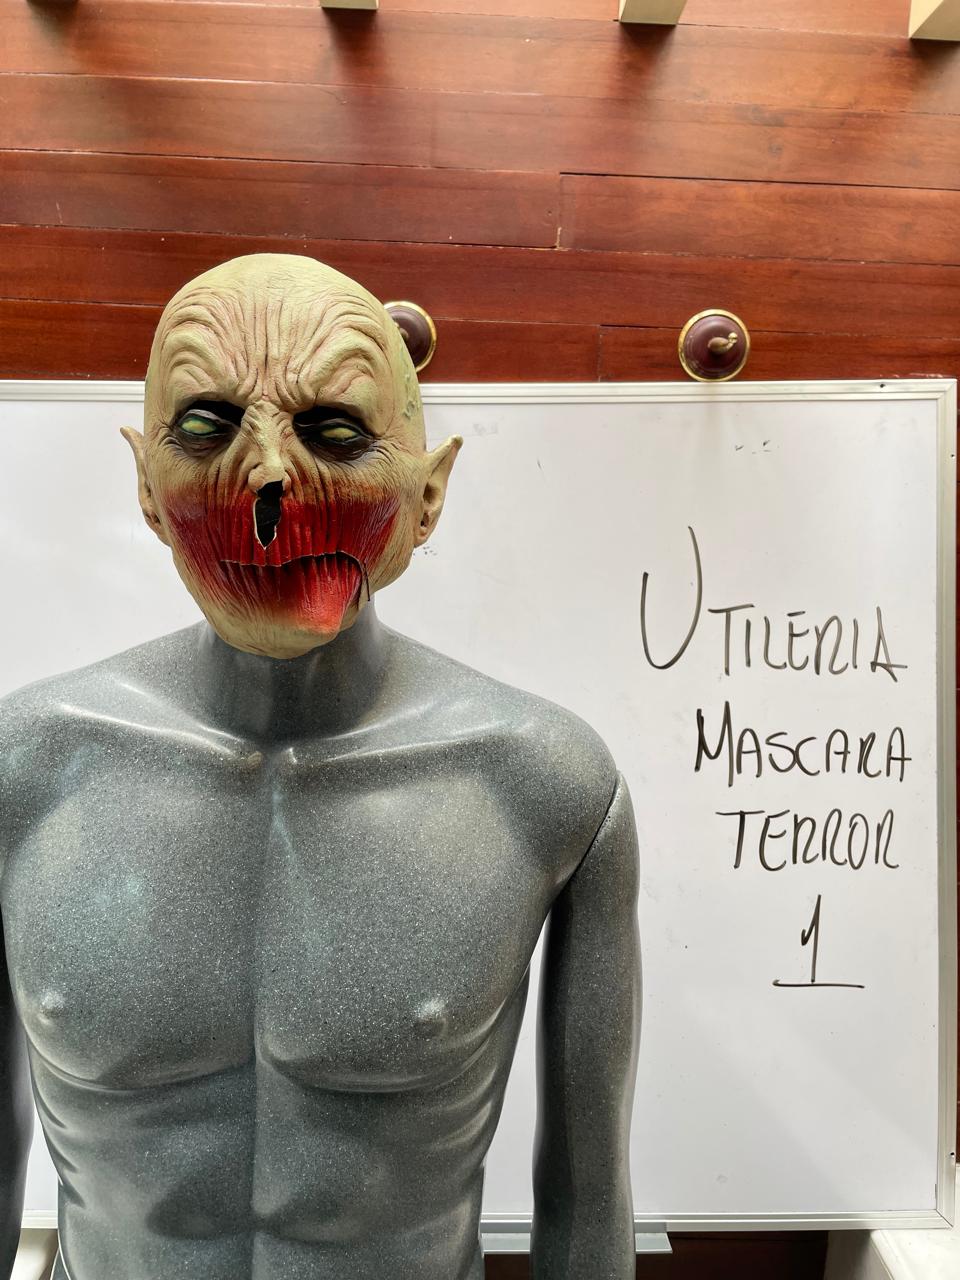 UTILERIA
MASCARA
TERROR
1